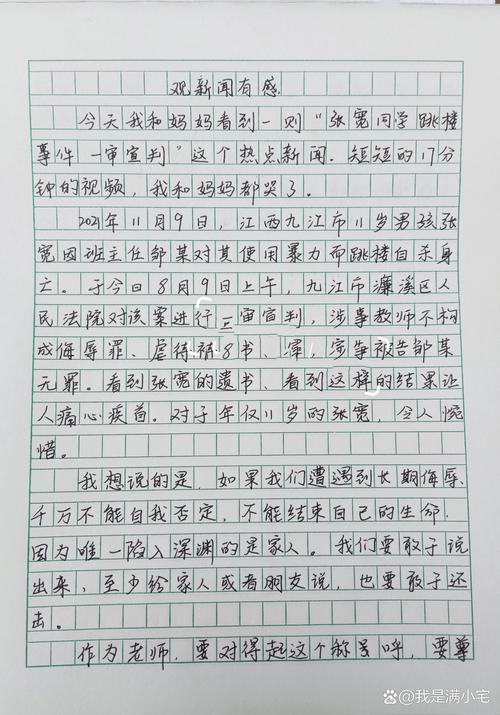 观新闻有感
今天我和妈妈看到一则"张宽同学跳楼
事件一审宣判"这个热点新闻。短短的17分
钟的视频，我和妈妈都哭了。
2021年11月9日，江西九江市11岁男孩张
宽因班主任邹某对其使用暴力而跳楼自杀身
亡。于今日8月9日上午，九江市濂溪区人
民法院对该案进行一审宣判，涉事教师不构
成侮辱罪、虐待 罪，被告邹某
无罪。看到张宽的遗书、看到这样的结果让
人痛心疾首。对于年仅11岁的张宽，令人惋
惜。
我想说的是，如果我们遭遇到长期侮辱、
千万不能自我否定，不能结束自己的生命.
因为唯一陷入深渊的是家人。我们要敢于说
出来，至少给家人或者朋友说，也要敢于还
击。
作为老师，要对得起这个称号呼，要尊
@我是满小宅